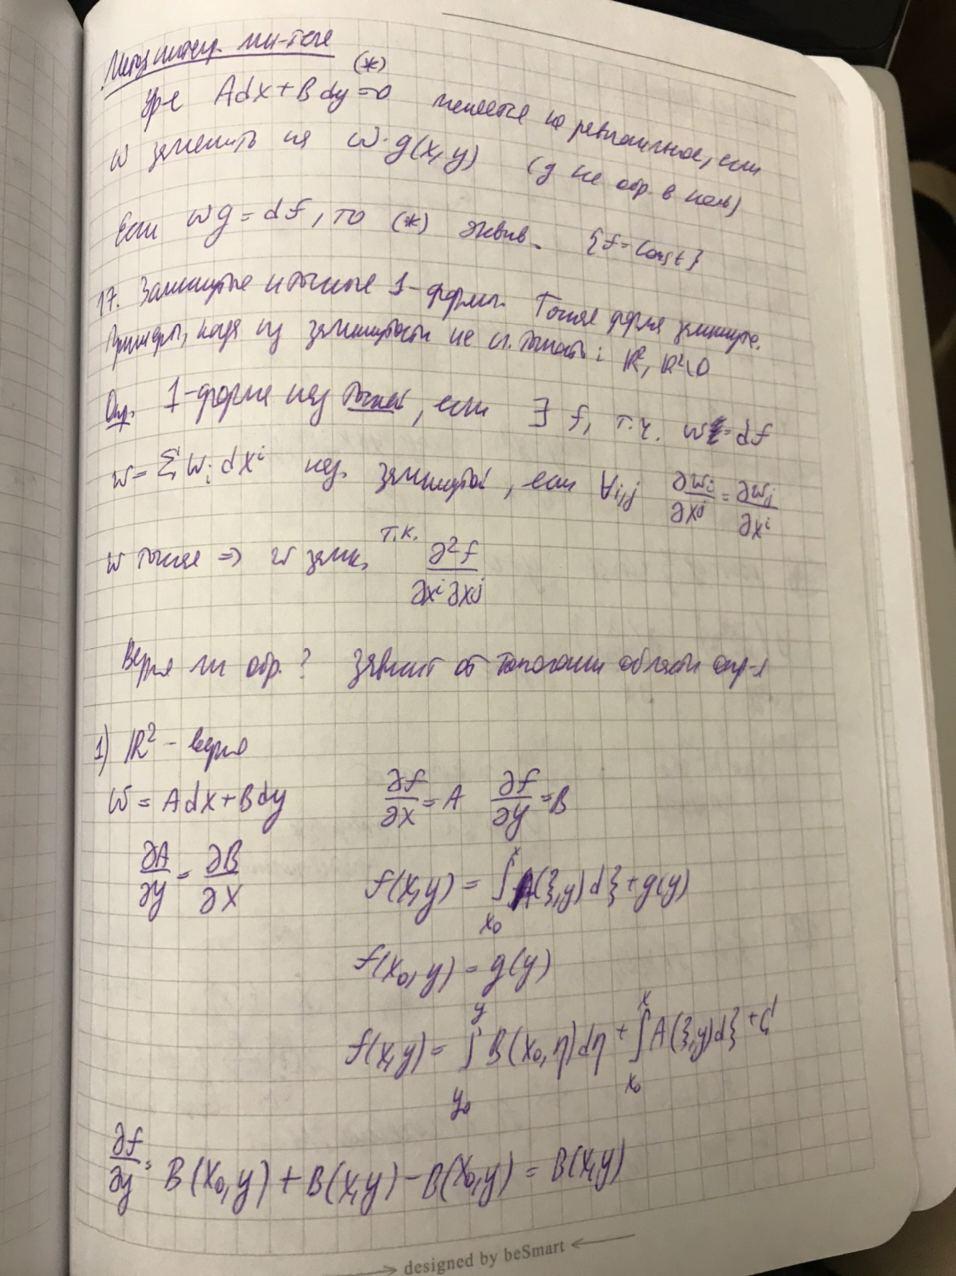 Метод интегр. мн-теля
Ур-е Adx + Bdy = 0 (*) меняется на равносильное, если
ω заменить на ω·g(x,y) (g не обр. в ноль)
Если ωg = df, то (*) эквив. {f = const}
17. Замкнутые и точные 1-формы. Точная форма замкнута.
Примеры, когда из замкнутости не сл. точность: ℝ², ℝ²\0
Опр. 1-форма наз точной, если ∃ f, т.ч. ω = df
ω = Σ ωᵢ dxⁱ наз. замкнутой, если ∀i,j ∂ωᵢ/∂xʲ = ∂ωⱼ/∂xⁱ
ω точная => ω замк, т.к. ∂²f/∂xⁱ∂xʲ
Верно ли обр.? Зависит от топологии области опр-я
1) ℝ² - верно
ω = Adx + Bdy ∂f/∂x = A ∂f/∂y = B
∂A/∂y = ∂B/∂x
f(x,y) = ∫_{x₀}^{x} A(ξ,y)dξ + g(y)
f(x₀,y) = g(y)
f(x,y) = ∫_{y₀}^{y} B(x₀,η)dη + ∫_{x₀}^{x} A(ξ,y)dξ + C
∂f/∂y = B(x₀,y) + B(x,y) - B(x₀,y) = B(x,y)
designed by beSmart